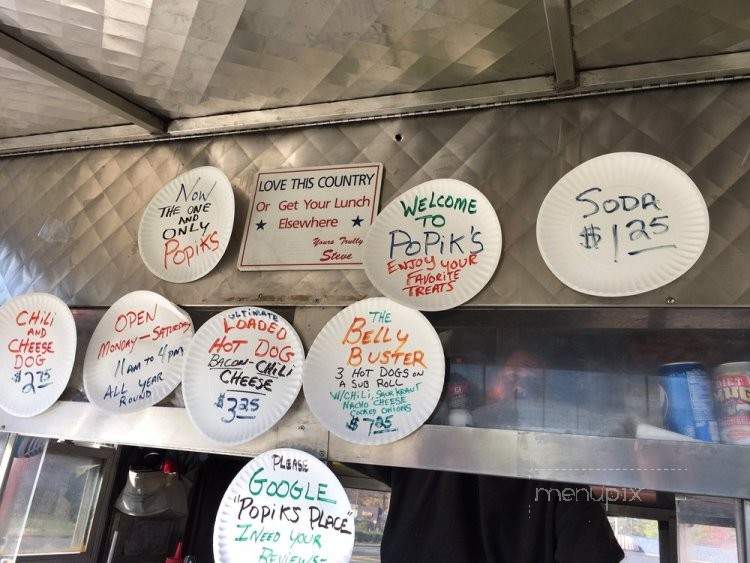 Now
THE ONE
AND
ONLY
POPIKS
LOVE THIS COUNTRY
Or Get Your Lunch
★ Elsewhere ★
Yours Truly
Steve
WELCOME
TO
POPIK'S
ENJOY YOUR
FAVORITE
TREATS
SODA
$1 25
CHILI
AND
CHEESE
DOG
$2 75
OPEN
MONDAY-SATURDAY
11AM TO 4PM
ALL YEAR
ROUND
ULTIMATE
LOADED
HOT DOG
BACON-CHILI
CHEESE
$3 25
THE
BELLY
BUSTER
3 HOT DOGS ON
A SUB ROLL
W/CHILI, SAUR KRAUT
NACHO CHEESE
COOKED ONIONS
$7 25
PLEASE
GOOGLE
"POPIKS PLACE"
I NEED YOUR
REVIEWS-
menupix